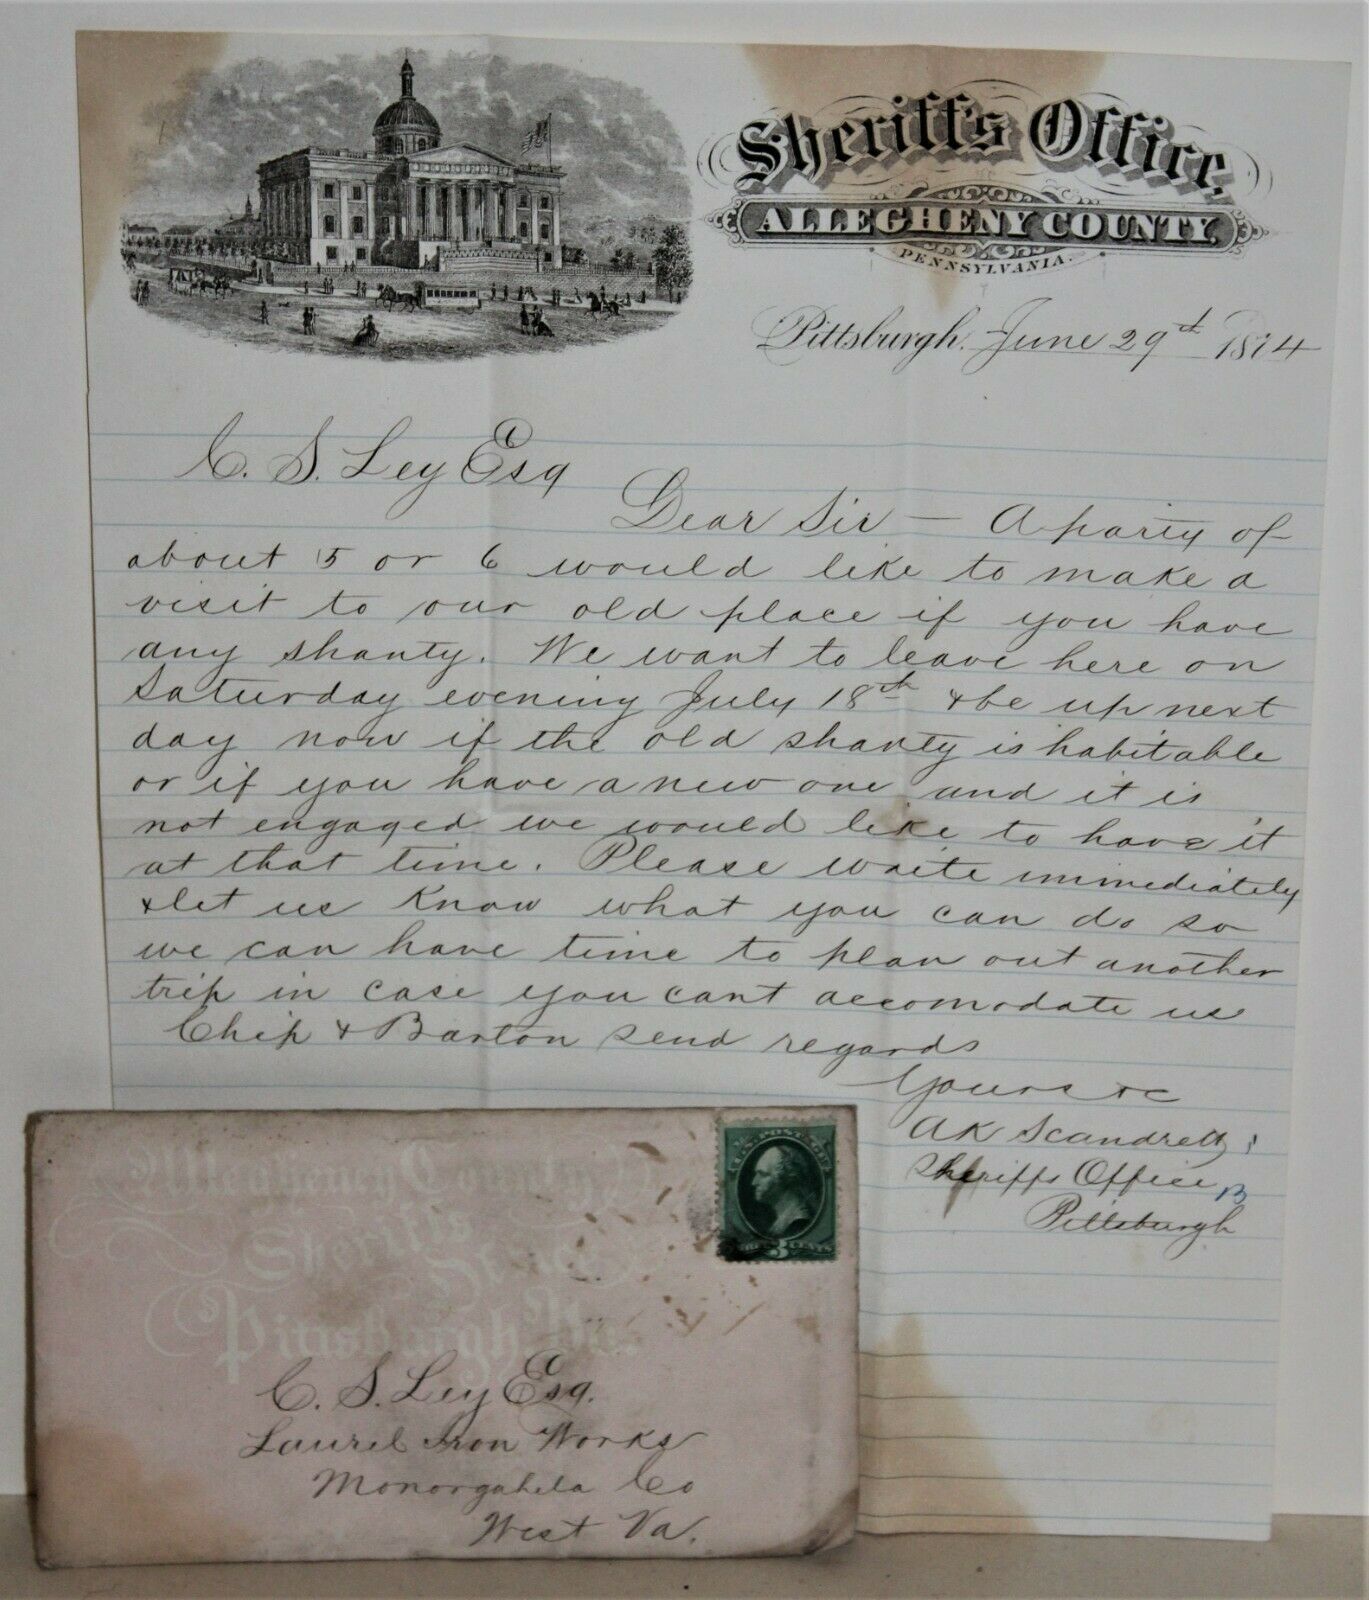 Sheriff's Office,
ALLEGHENY COUNTY,
PENNSYLVANIA.
Pittsburgh, June 29th 1874
C. S. Ley Esq
Dear Sir — A party of
about 5 or 6 would like to make a
visit to our old place if you have
any shanty. We want to leave here on
Saturday evening July 18th & be up next
day now if the old shanty is habitable
or if you have a new one and it is
not engaged we would like to have it
at that time. Please write immediately
& let us know what you can do so
we can have time to plan out another
trip in case you cant accomodate us
Chip & Barton send regards
Yours &c
AK Scandrett
Sheriffs Office
Pittsburgh
Allegheny County
Sheriff's Office
Pittsburgh Pa.
U.S. POSTAGE
THREE 3 CENTS
C. S. Ley Esq.
Laurel Iron Works
Monongahela Co
West Va.